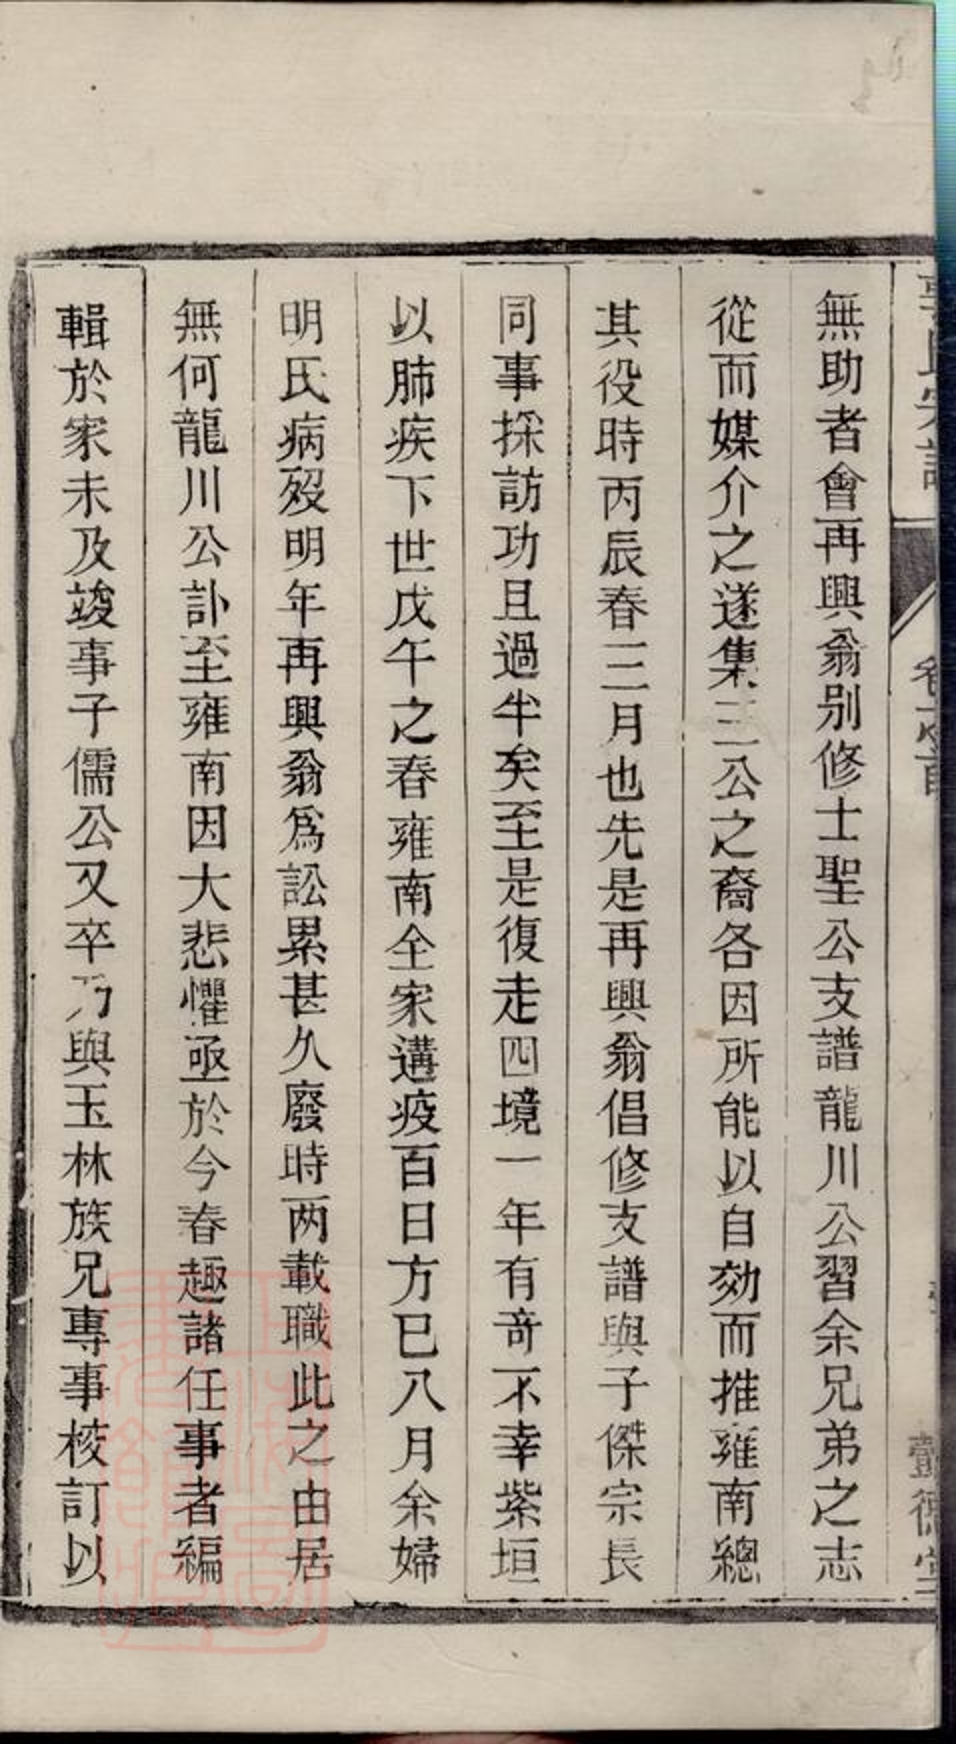 無助者會再興翁别修士聖公支譜龍川公習余兄弟之志
從而媒介之遂集三公之裔各因所能以自効而推雍南總
其役時丙辰春三月也先是再興翁倡修支譜與子傑宗長
同事採訪功且過半矣至是復走四境一年有竒不幸紫垣
以肺疾下世戊午之春雍南全家遘疫百日方已八月余婦
明氏病殁明年再興翁爲訟累甚久廢時两載職此之由居
無何龍川公訃至雍南因大悲懼亟於今春趣諸任事者編
輯於家未及竣事子儒公又卒乃與玉林族兄專事核訂以